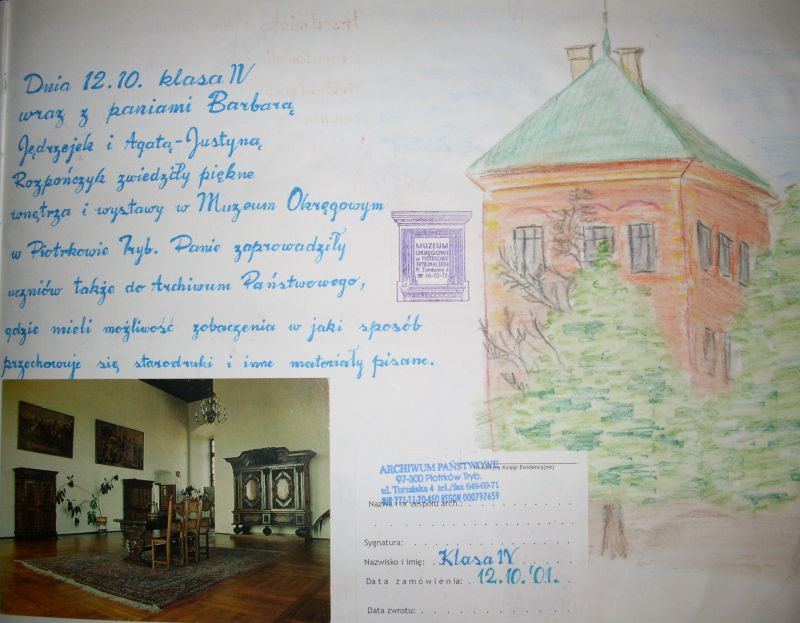 Dnia 12.10. klasa IV
wraz z paniami Barbarą
Jędrzejek i Agatą-Justyną
Rozpończyk zwiedziły piękne
wnętrza i wystawy w Muzeum Okręgowym
w Piotrkowie Tryb. Panie zaprowadziły
uczniów także do Archiwum Państwowego,
gdzie mieli możliwość zobaczenia w jaki sposób
przechowuje się starodruki i inne materiały pisane.
MUZEUM
OKRĘGOWE
w PIOTRKOWIE
TRYBUNALSKIM
Pl. Zamkowy 4
☎ 46-52-72
ARCHIWUM PAŃSTWOWE
Księgi Ewidencyjnej
97-300 Piotrków Tryb.
ul. Toruńska 4 tel./fax 649-69-71
NIP 771-11-70-450 REGON 000797659
Nazwa i nr zespołu arch.:
Sygnatura:
Nazwisko i imię: Klasa IV
Data zamówienia: 12.10.'01.
Data zwrotu: